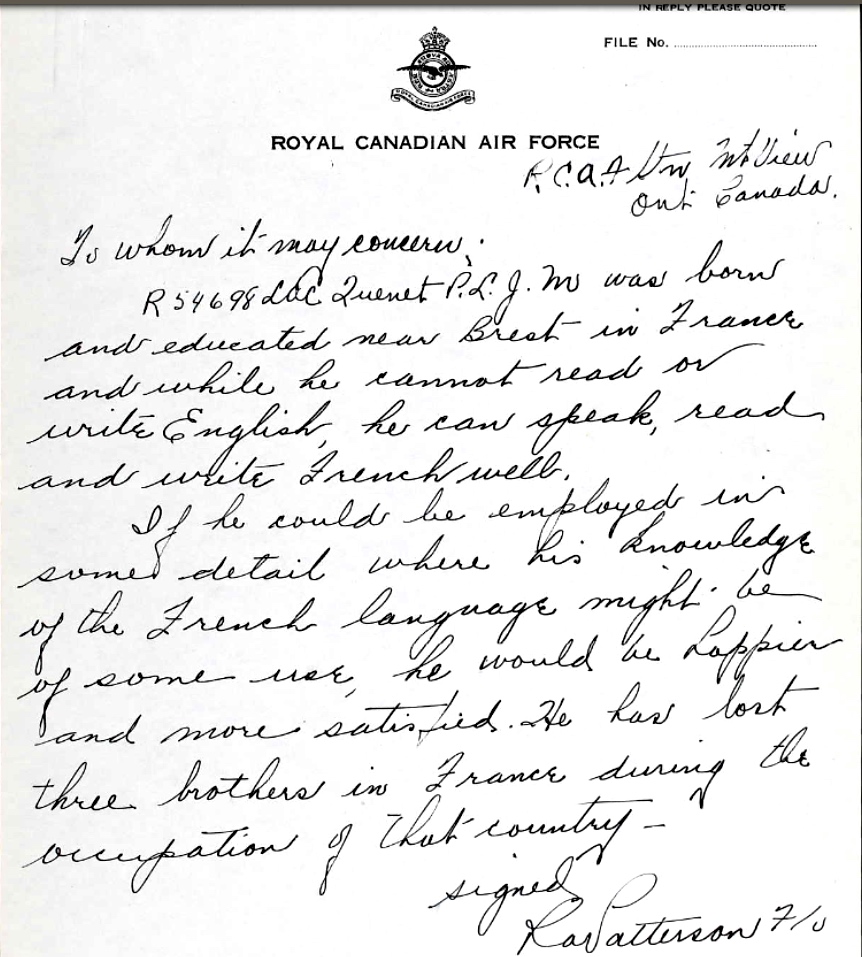 IN REPLY PLEASE QUOTE
FILE No.
ROYAL CANADIAN AIR FORCE
ROYAL CANADIAN AIR FORCE
R.C.A.F Stn Mt View
Ont Canada.
To whom it may concern:
R54698 LAC Quenet P.L.J.M was born
and educated near Brest in France
and while he cannot read or
write English, he can speak, read
and write French well.
If he could be employed in
some detail where his knowledge
of the French language might be
of some use, he would be happier
and more satisfied. He has lost
three brothers in France during the
occupation of that country -
signed
Patterson F/O